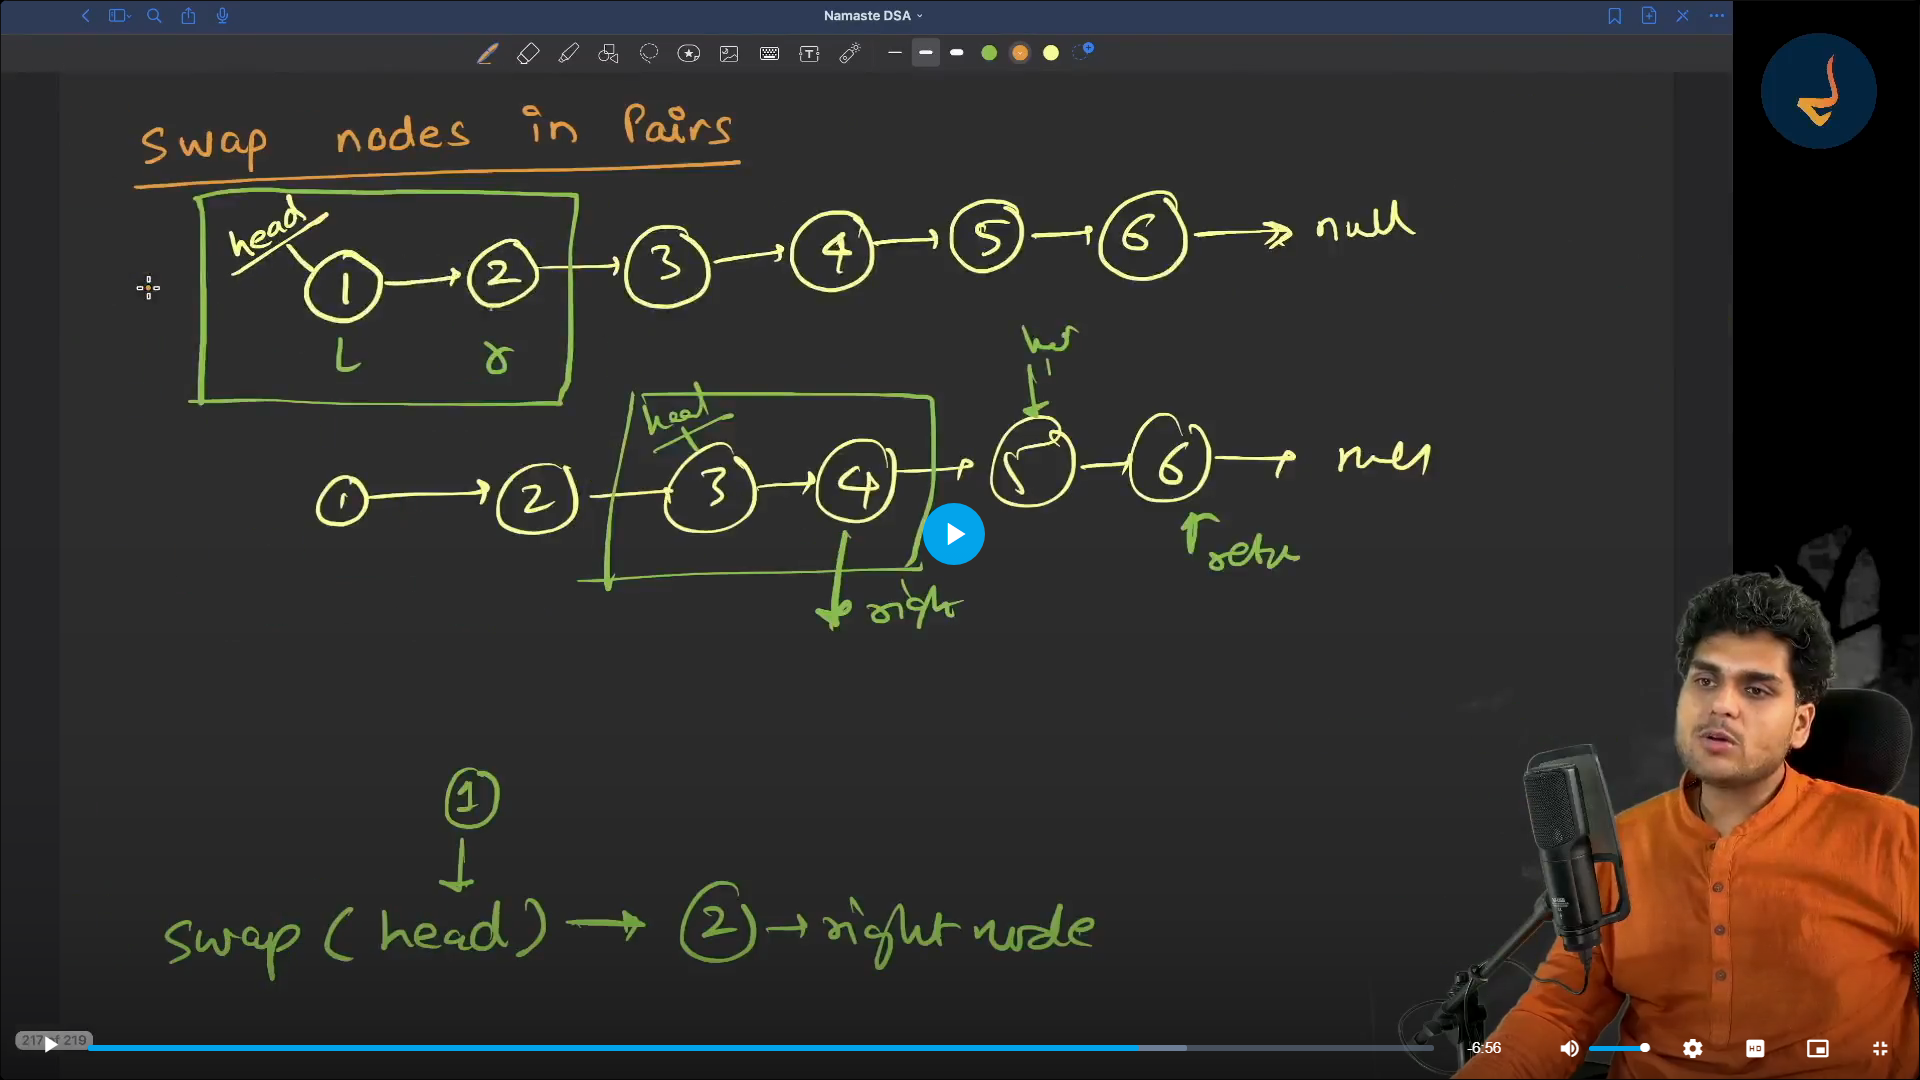 Namaste DSA
Swap nodes in Pairs
head
1 2 3 4 5 6 null
L r
head
1 2 3 4 5 6 null
right
retu
1
swap (head) → 2 → right node
217 of 219
-6:56
HD